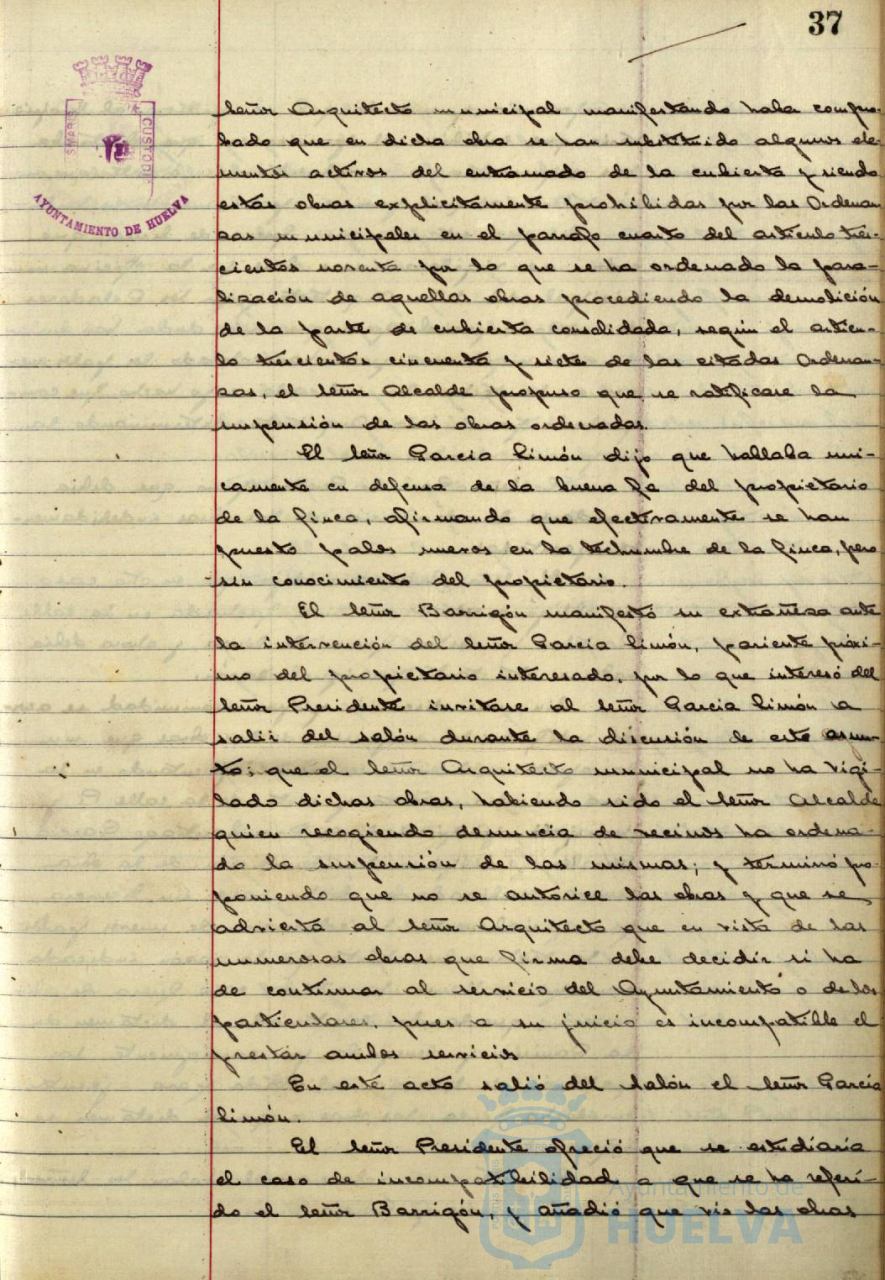 37
PORTUS MARIS
CUSTODIA
AYUNTAMIENTO DE HUELVA
señor Arquitecto municipal manifestando haba compro-
bado que en dicha obra se han substituido algunos ele-
mentos activos del entramado de la cubierta y siendo
estas obras explicitamente prohibidas por las Ordenan-
zas municipales en el parrafo cuarto del articulo tres-
cientos noventa por lo que se ha ordenado la para-
lización de aquellas obras procediendo la demolición
de la parte de cubierta consolidada, según el articu-
lo trescientos cincuenta y siete de las citadas Ordenan-
zas, el señor Alcalde propuso que se ratificase la
suspensión de las obras ordenadas.
El señor García Limón dijo que hablaba uni-
camente en defensa de la buena fe del propietario
de la finca, afirmando que efectivamente se han
puesto palos nuevos en la techumbre de la finca, pero
sin conocimiento del propietario.
El señor Barrigón manifestó su extrañeza ante
la intervención del señor García Limón, pariente próxi-
mo del propietario interesado, por lo que interesó del
señor Presidente invitase al señor García Limón a
salir del salón durante la discusión de este asun-
to; que el señor Arquitecto municipal no ha vigi-
lado dichas obras, habiendo sido el señor Alcalde
quien recogiendo denuncia de vecinos ha ordena-
do la suspensión de las mismas; y terminó pro-
poniendo que no se autorice las obras y que se
advierta al señor Arquitecto que en vista de las
numerosas obras que firma debe decidir si ha
de continuar al servicio del Ayuntamiento o de los
particulares, pues a su juicio es incompatible el
prestar ambos servicios
En este acto salió del salón el señor García
Limón.
El señor Presidente ofreció que se estudiaría
el caso de incompatibilidad a que se ha referi-
do el señor Barrigón, y añadió que vio las obras
Ayuntamiento de
HUELVA